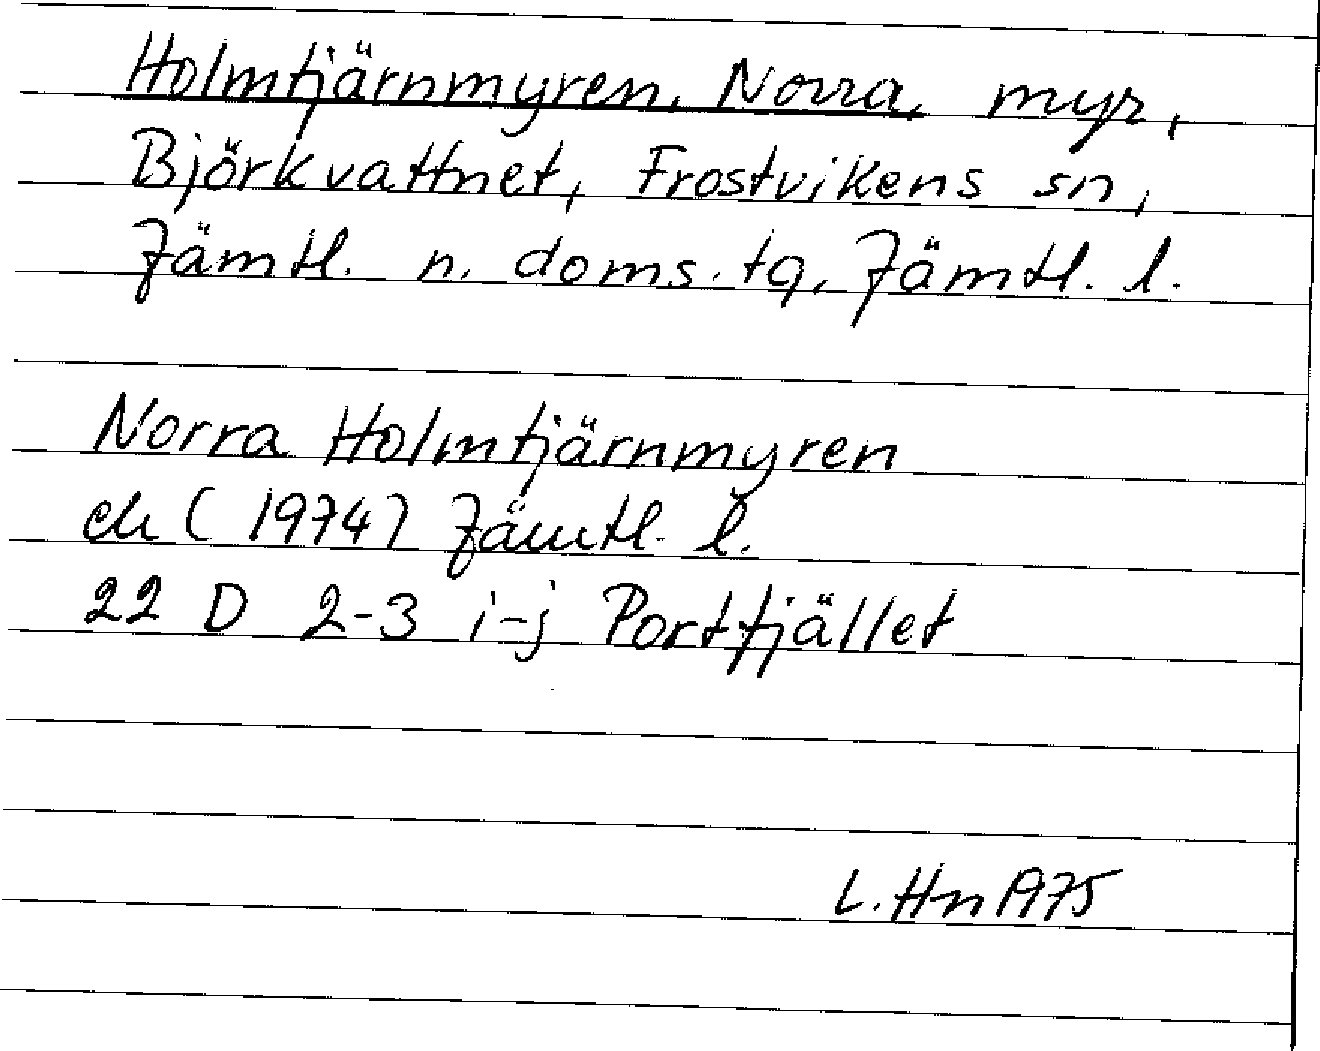 Holmtjärnmyren, Norra, myr,
Björkvattnet, Frostvikens sn,
Jämtl. n. doms. tg, Jämtl. l.
Norra Holmtjärnmyren
ek (1974) Jämtl. l.
22 D 2-3 i-j Portfjället
L. Hn 1975